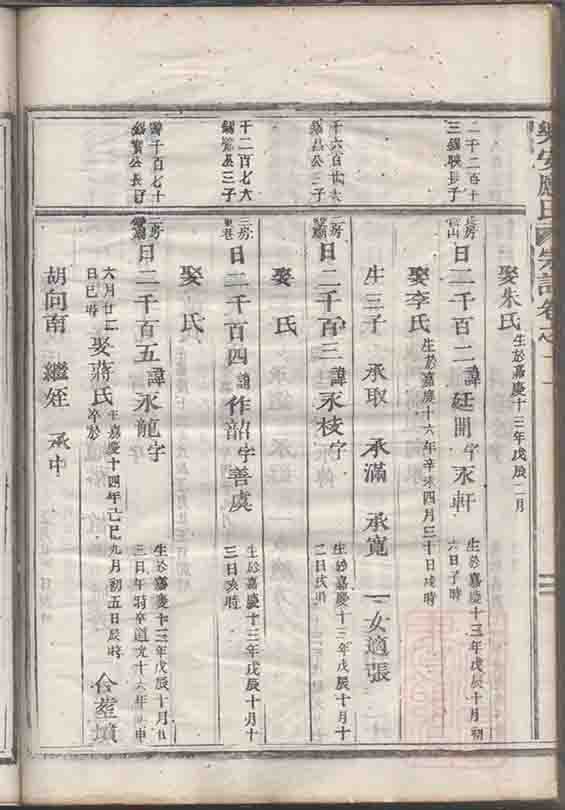 樂安應氏宗譜 卷之
娶朱氏 生於嘉慶十三年戊辰二月
二千二百十
三 長子
房
日二千百二 諱 廷開 字 永軒 生於嘉慶十三年戊辰十月初
六日子時
娶李氏 生於嘉慶十六年辛未四月三十日戌時
生三子 承取 承滿 承寬 一女適張
千六百
公三子
二房
日二千百三 諱 永枝 字 生於嘉慶十三年戊辰十月十
二日戌時
娶 氏
十二百七六
三子
三房
日二千百四 諱 作韶 字 善虞 生於嘉慶十三年戊辰十月十
三日亥時
娶 氏
千百七十
公長子
二房
日二千百五 諱 永龍 字 生於嘉慶十三年戊辰十月
三日午時卒道光十六年 申
六月廿二
日巳時 娶蔣氏 生嘉慶十四年己巳九月初五日辰時
卒於 合葬墳
胡向南 繼姪 承中